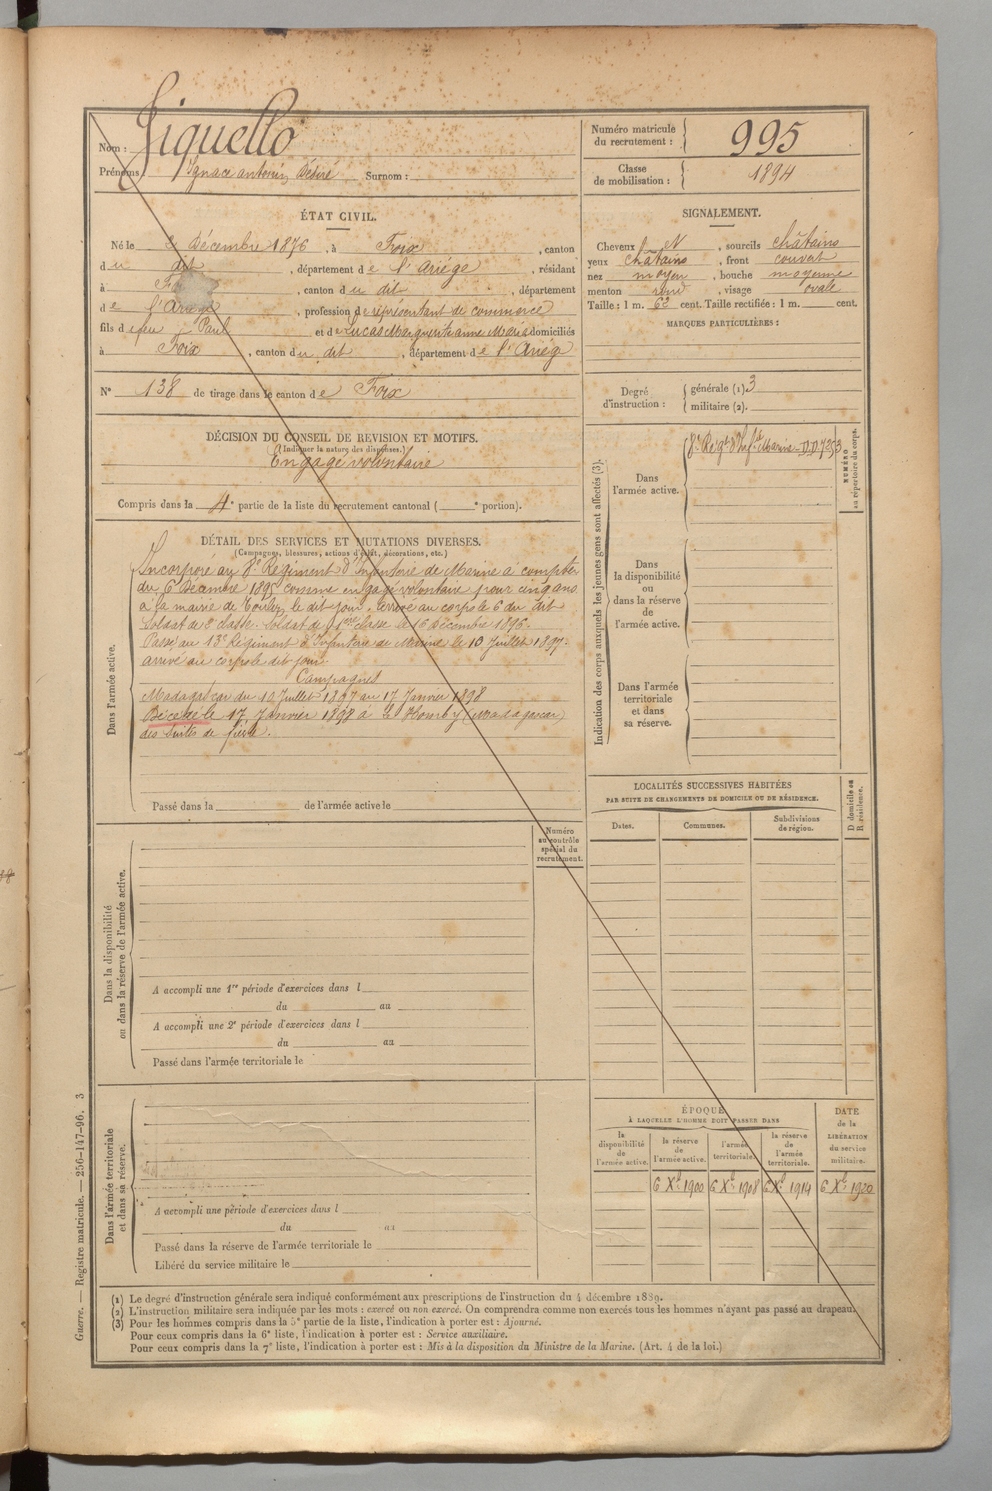 Nom : Figuello
Prénoms : Ignace antonin Désiré Surnom :
Numéro matricule du recrutement : 995
Classe de mobilisation : 1894
ÉTAT CIVIL.
Né le 2 Décembre 1876, à Foix, canton
du dit, département de l'Ariége, résidant
à Foix, canton du dit, département
de l'Ariège, profession de représentant de commerce
fils de feu Paul et de Lucas Marguerite anne Maria domiciliés
à Foix, canton du dit, département de l'Ariég
N° 138 de tirage dans le canton de Foix
DÉCISION DU CONSEIL DE REVISION ET MOTIFS.
(Indiquer la nature des dispenses.)
Engagé volontaire
Compris dans la 4e partie de la liste du recrutement cantonal ( e portion).
DÉTAIL DES SERVICES ET MUTATIONS DIVERSES.
(Campagnes, blessures, actions d'éclat, décorations, etc.)
Dans l'armée active.
Incorporé au 8e Régiment d'Infanterie de Marine à compter
du 6 Décembre 1895 comme engagé volontaire pour cinq ans
à la mairie de Toulon le dit jour. arrivé au corps le 6 du dit
Soldat de 2e classe. Soldat de 1ere classe le 16 décembre 1896.
Passé au 13e Régiment d'Infanterie de Marine le 10 Juillet 1897.
arrivé au corps le dit jour.
Campagnes
Madagascar du 10 Juillet 1897 au 17 Janvier 1898
Décédé le 17 Janvier 1898 à (Madagascar)
des suites de fièvre.
Passé dans la de l'armée active le
Numéro au contrôle spécial du recrutement.
Dans la disponibilité ou dans la réserve de l'armée active.
A accompli une 1re période d'exercices dans l
du au
A accompli une 2e période d'exercices dans l
du au
Passé dans l'armée territoriale le
Dans l'armée territoriale et dans sa réserve.
A accompli une période d'exercices dans l
du au
Passé dans la réserve de l'armée territoriale le
Libéré du service militaire le
SIGNALEMENT.
Cheveux et N, sourcils châtains
yeux châtains, front couvert
nez moyen, bouche moyenne
menton rond, visage ovale
Taille : 1 m. 62 cent. Taille rectifiée : 1 m. cent.
MARQUES PARTICULIÈRES :
Degré d'instruction :
générale (1) 3
militaire (2).
Indication des corps auxquels les jeunes gens sont affectés (3).
NUMÉRO au répertoire du corps.
Dans l'armée active.
8e Régt d'Infie Marine
Dans la disponibilité ou dans la réserve de l'armée active.
Dans l'armée territoriale et dans sa réserve.
LOCALITÉS SUCCESSIVES HABITÉES
PAR SUITE DE CHANGEMENTS DE DOMICILE OU DE RÉSIDENCE.
Dates.
Communes.
Subdivisions de région.
D domicile ou R résidence.
ÉPOQUE
À LAQUELLE L'HOMME DOIT PASSER DANS
la disponibilité de l'armée active.
la réserve de l'armée active.
l'armée territoriale.
la réserve de l'armée territoriale.
DATE de la LIBÉRATION du service militaire.
6 Xbre 1900
6 Xbre 1908
6 Xbre 1914
6 Xbre 1920
(1) Le degré d'instruction générale sera indiqué conformément aux prescriptions de l'instruction du 4 décembre 1889.
(2) L'instruction militaire sera indiquée par les mots : exercé ou non exercé. On comprendra comme non exercés tous les hommes n'ayant pas passé au drapeau.
(3) Pour les hommes compris dans la 5e partie de la liste, l'indication à porter est : Ajourné.
Pour ceux compris dans la 6e liste, l'indication à porter est : Service auxiliaire.
Pour ceux compris dans la 7e liste, l'indication à porter est : Mis à la disposition du Ministre de la Marine. (Art. 4 de la loi.)
Guerre. — Registre matricule. — 256-147-96. 3